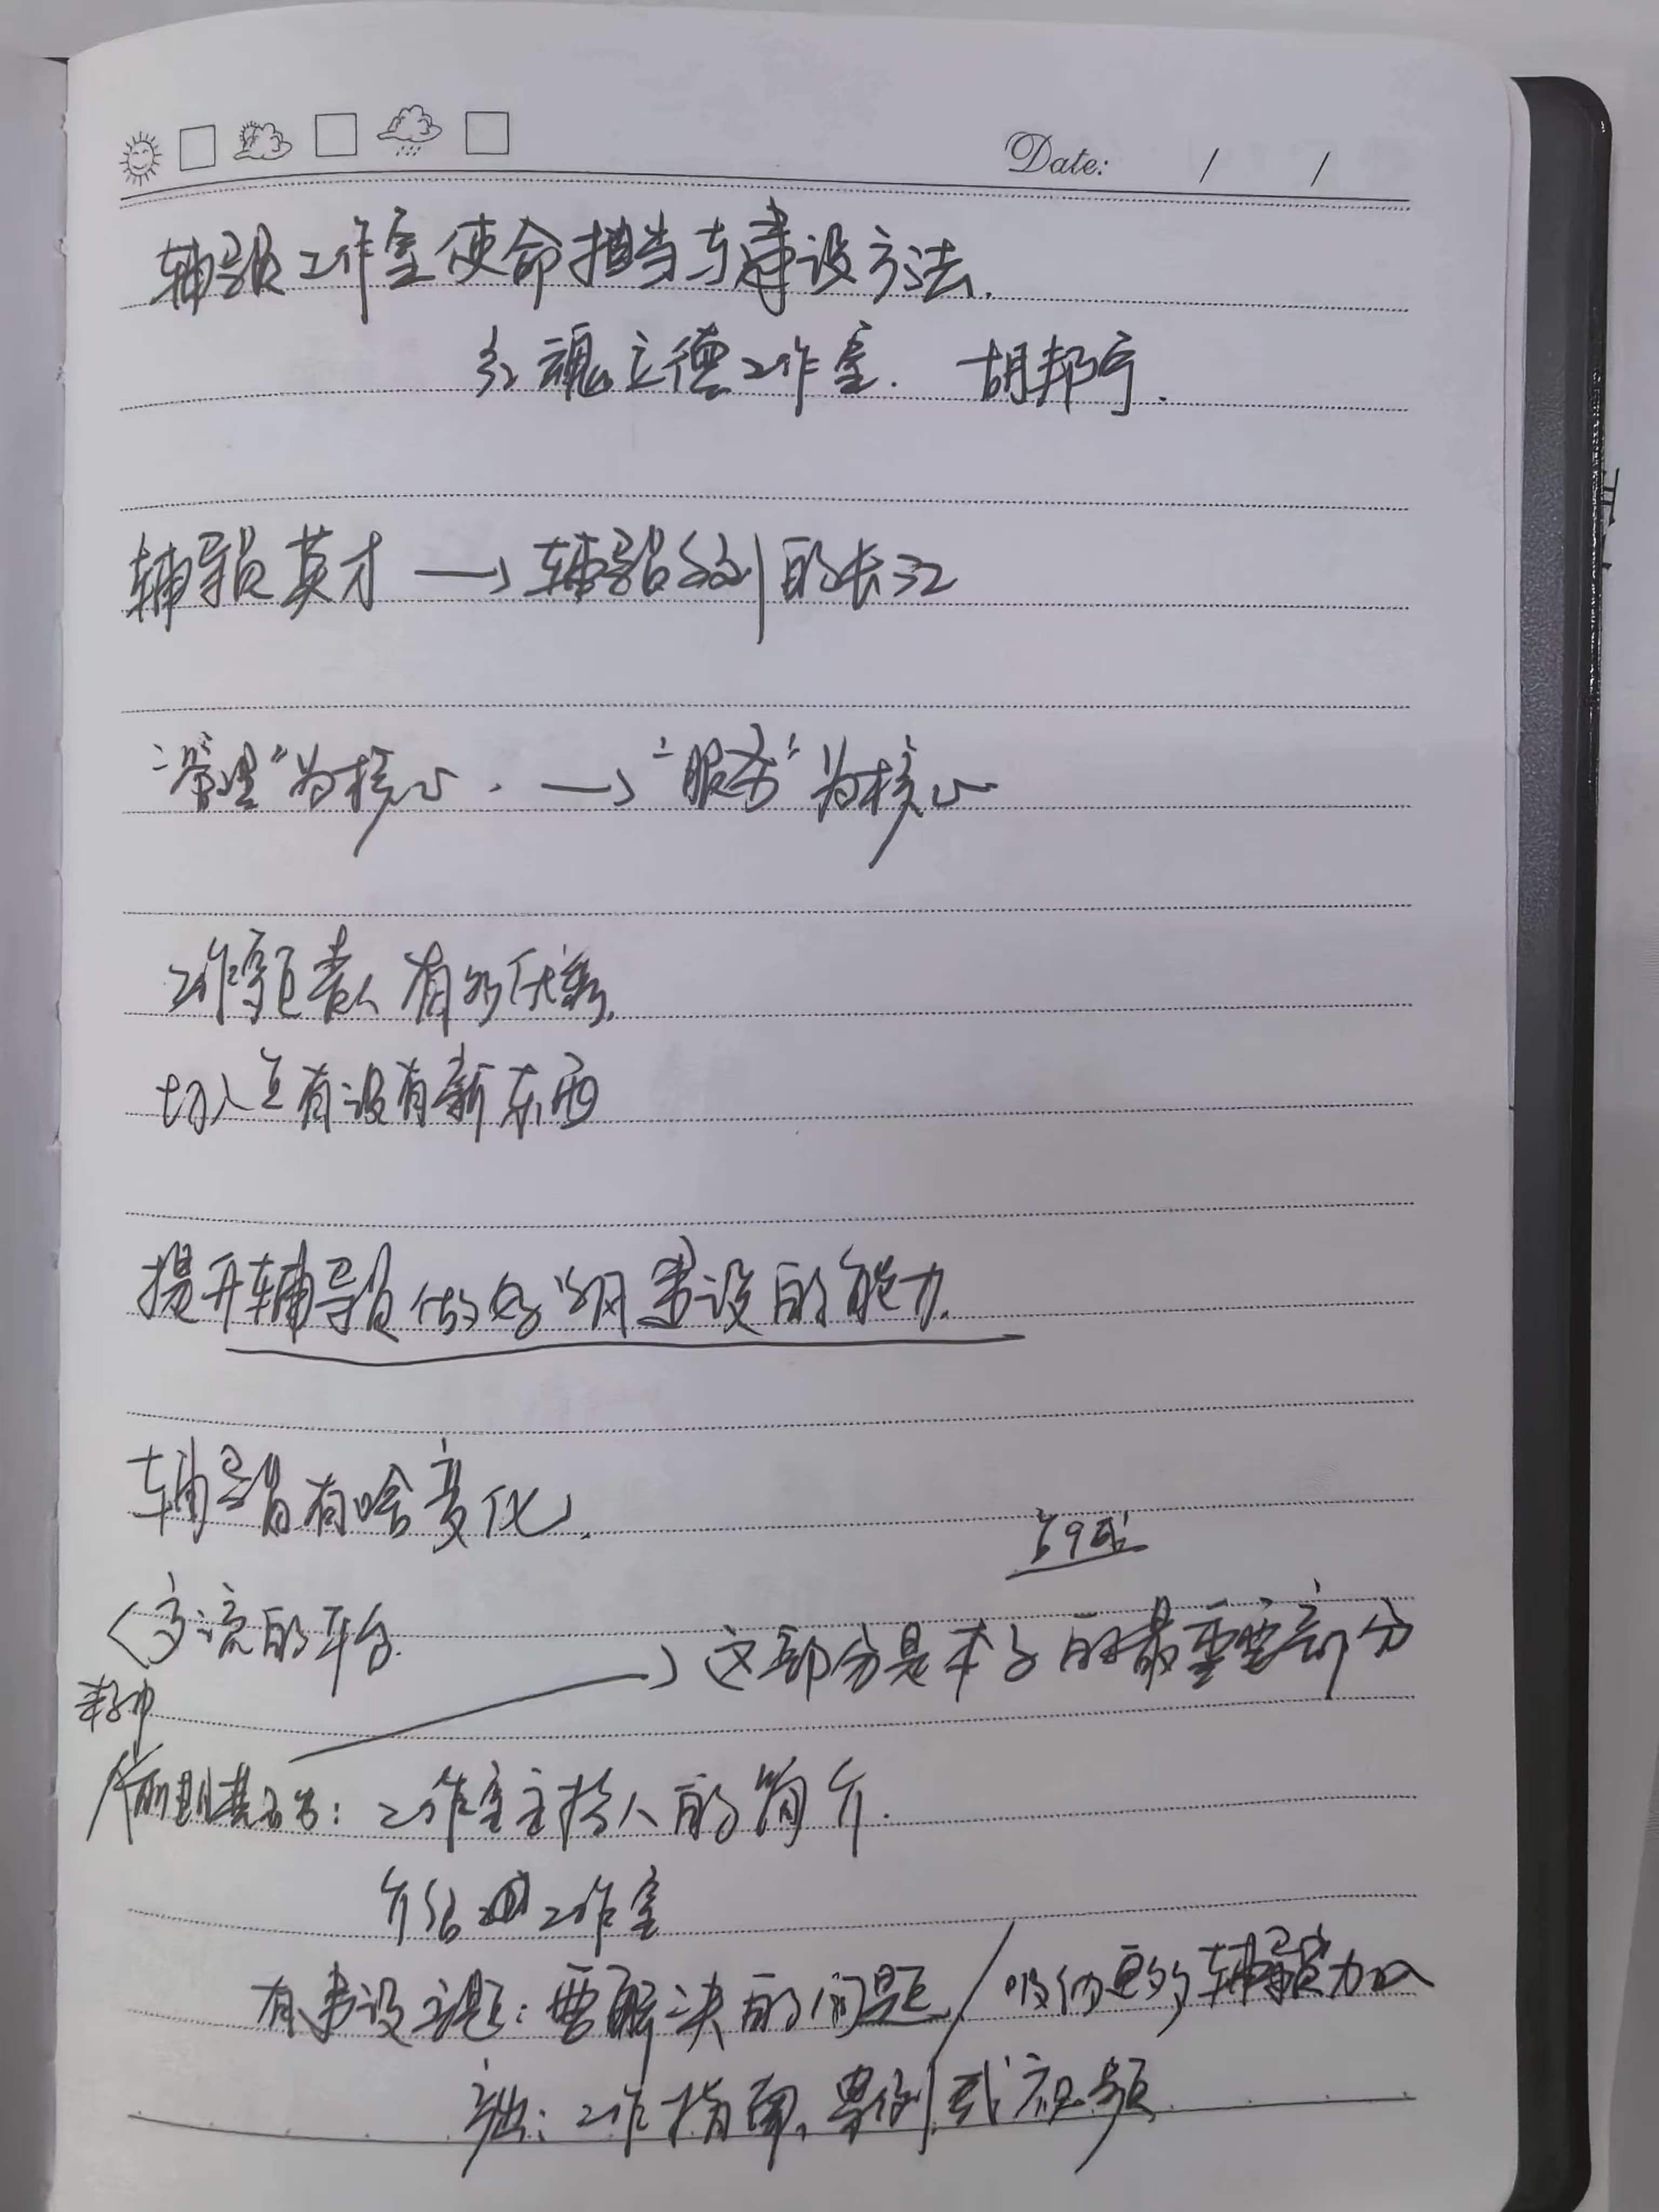 Date: / /
辅导员工作室使命担当与建设方法.
红魂立德工作室. 胡邦宁.
辅导员英才 → 辅导员系列的长江
“管理”为核心. → “服务”为核心
工作室负责人有多优秀,
切入点有没有新东西
提升辅导员做好学风建设的能力.
辅导员有啥变化.
交流的平台.
→ 这部分是本子的最重要部分
前期基础: 工作室主持人的简介.
介绍 工作室
有建设主题: 要解决的问题 / 吸纳更多辅导员加入
产出: 工作指南, 案例或视频